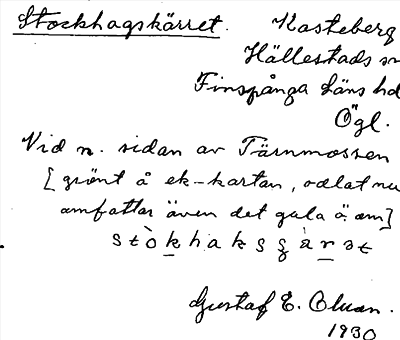 Stockhagskärret. Kasteberg
Hällestads sn
Finspånga läns hd
Ögl.
Vid n. sidan av Tärnmossen
[grönt å ek-kartan, odlat nu
omfattar även det gula ä. om]
Gustaf E.
1930